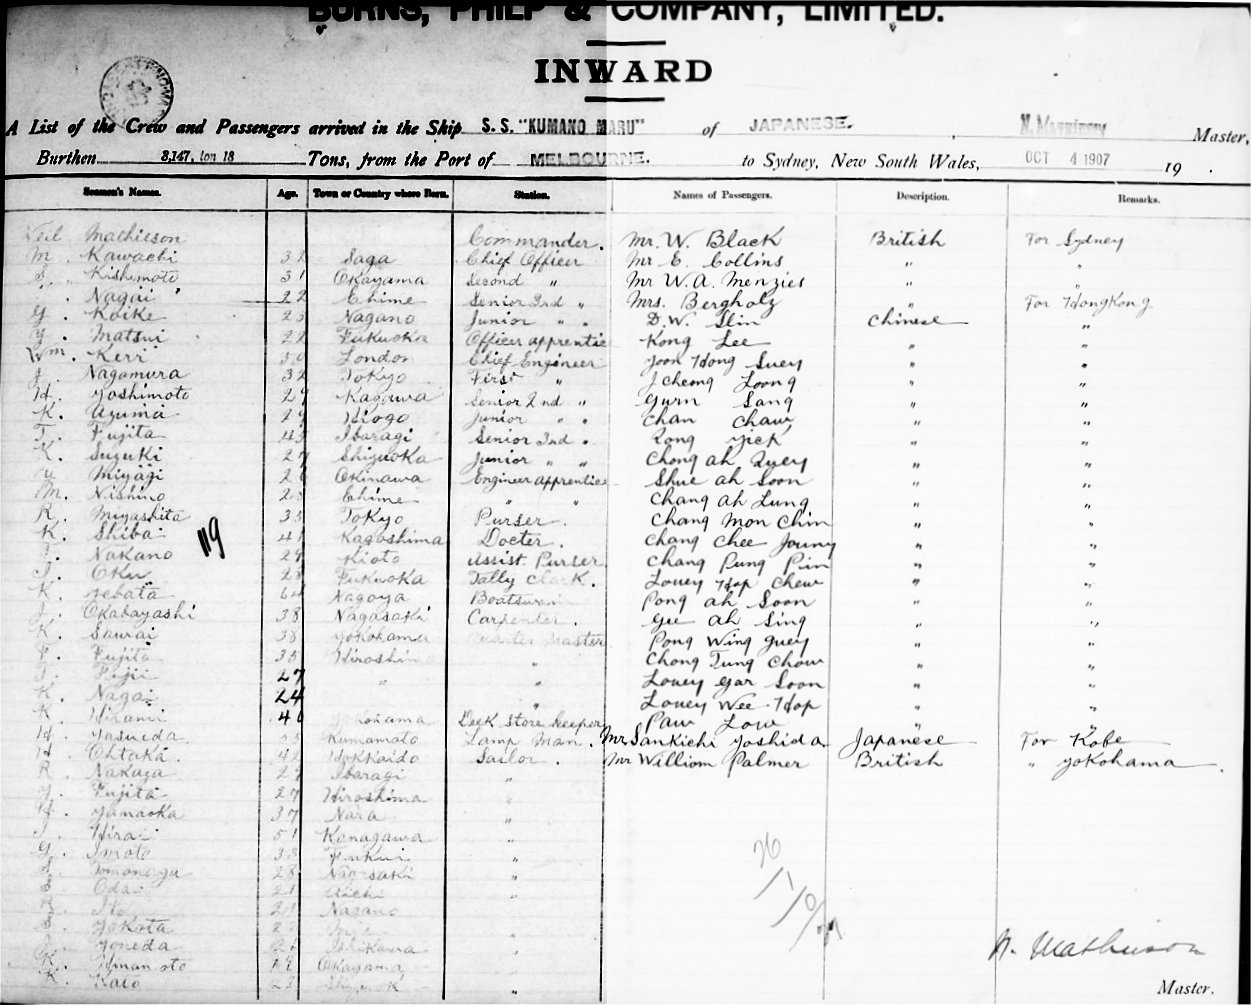 BURNS, PHILP & COMPANY, LIMITED.
INWARD
A List of the Crew and Passengers arrived in the Ship S. S. "KUMANO MARU" of JAPANESE. Master,
Burthen 3,147, ton 18 Tons, from the Port of MELBOURNE. to Sydney, New South Wales, OCT 4 1907 19 .
Seamen's Names. Age. Town or Country where Born. Station. Names of Passengers. Description. Remarks.
Neil Mathieson Commander. Mr. W. Black British For Sydney
M. Kawachi Saga Chief Officer Mr E. Collins " "
S. Kishimoto 31 Okayama Second " Mr W. A. Menzies " "
Nagai 22 Ehime Senior 3rd " Mrs. Bergholz " For Hongkong
G. Koike 25 Nagano Junior " " D. W. Slin Chinese "
Y. Matsui 22 Fukuoka Officer apprentice Kong Lee " "
Wm. Kerr 50 London Chief Engineer Joon Hong Suey " "
J. Nagamura 32 Tokyo First " J Cheong Loong " "
H. Yoshimoto 29 Kagawa Senior 2nd " Gurn Sang " "
K. Azuma 29 Hiogo Junior " " Chan Chaw " "
T. Fujita 43 Ibaragi Senior 3rd " Yick " "
K. Suzuki 27 Shizuoka Junior " " Chong ah Quey " "
Y. Miyagi 26 Okinawa Engineer apprentice Shue ah Soon " "
M. Nishino 20 Ehime " " Chang ah Lung " "
R. Miyashita 35 Tokyo Purser. Chang Mon Chin " "
K. Shiba 119 41 Kagoshima Docter. Chang Chee Jouny " "
Nakano 29 Kioto Assist. Purser Chang Pung Pin " "
Oku 28 Fukuoka Tally Clark. Louey Hop Chew " "
K. Yebata 64 Nagoya Boatswain Pong ah Soon " "
Okabayashi 38 Nagasaki Carpenter. Gee ah Sing " "
K. Sawai 38 Yokohama Quarter Master Pong Wing Guey " "
Fujita 35 Hiroshima " Chong Tung Chow " "
Fujii 27 " " Louey Gar Soon " "
K. Nagai 24 " Louey Wee Hop " "
K. Hirami 40 Yokohama Deck Store keeper Paw Low " "
H. Yasueda Kumamoto Lamp Man. Mr. Sankichi Yoshida Japanese For Kobe
H. Ohtaka. 42 Hokkaido Sailor. Mr William Palmer British " Yokohama
R. Nakaya 27 Ibaragi "
Fujita 27 Hiroshima "
Yamaoka 37 Nara "
Hirai 51 Kanagawa "
G. Imoto Fukui "
Tomonaga 28 Nagasaki "
Oda 21 Aichi "
Ito 21 Nagano
S. Yokota "
Yoneda Ishikawa "
K. 19 Okayama
K. Kato "
26
N. Mathieson
Master.